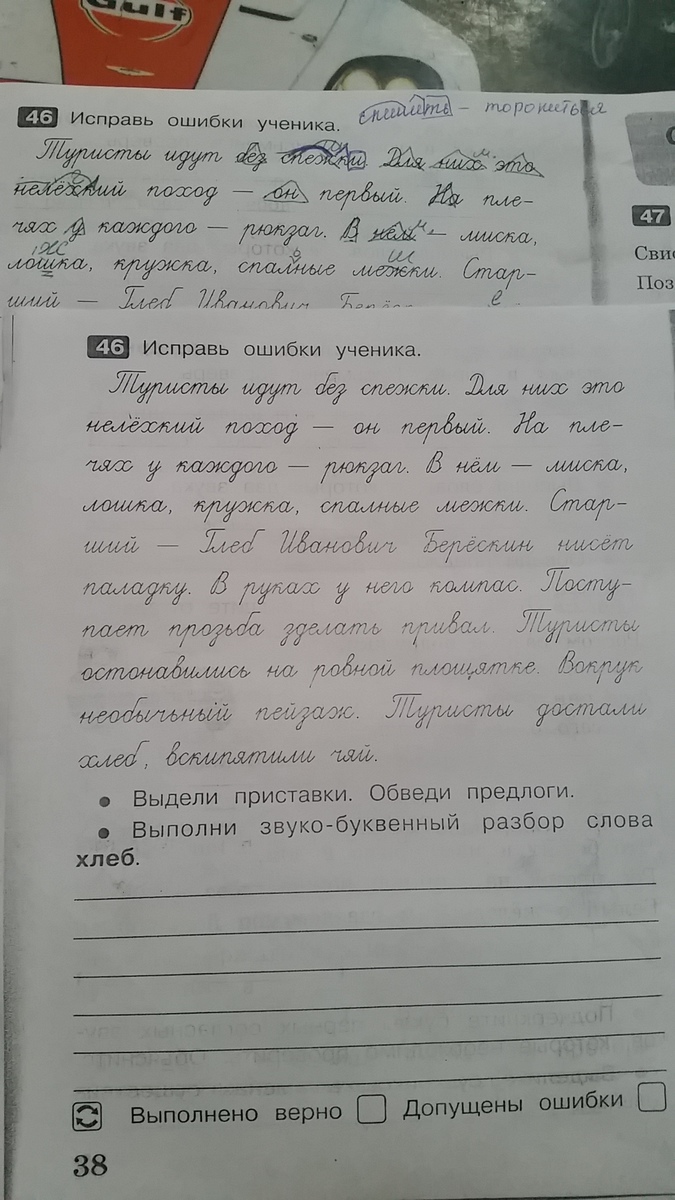 Gulf
46 Исправь ошибки ученика. спешить – торопиться
Туристы идут без спежки. Для них это
нелёхкий поход — он первый. На пле-
чях у каждого — рюкзаг. В нём — миска,
лошка, кружка, спалные межки. Стар-
ж ь ш
ший — Глеб Иванович Берёс
е
47
Сви
Поз
46 Исправь ошибки ученика.
Туристы идут без спежки. Для них это
нелёхкий поход — он первый. На пле-
чях у каждого — рюкзаг. В нём — миска,
лошка, кружка, спалные межки. Стар-
ший — Глеб Иванович Берёскин нисёт
паладку. В руках у него компас. Посту-
пает прозьба зделать привал. Туристы
остонавились на ровной площятке. Вокрук
необычьный пейзаж. Туристы достали
хлеб, вскипятили чяй.
• Выдели приставки. Обведи предлоги.
• Выполни звуко-буквенный разбор слова
хлеб.
Выполнено верно Допущены ошибки
38